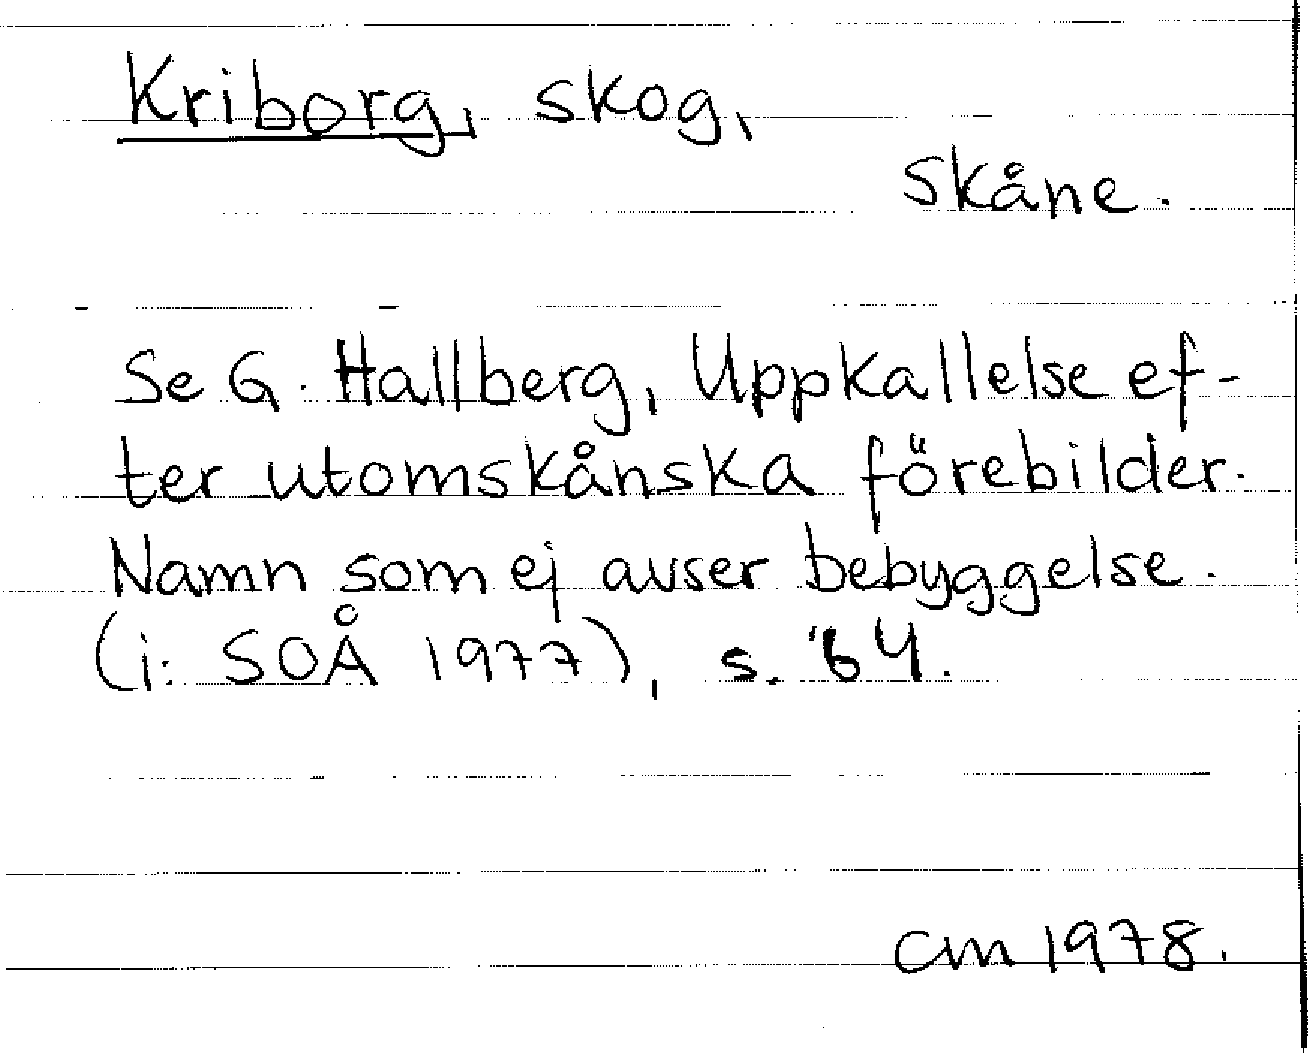 Kriborg, skog,
Skåne.
Se G. Hallberg, Uppkallelse ef-
ter utomskånska förebilder.
Namn som ej avser bebyggelse.
(i: SOÅ 1977), s. 64.
CM 1978.